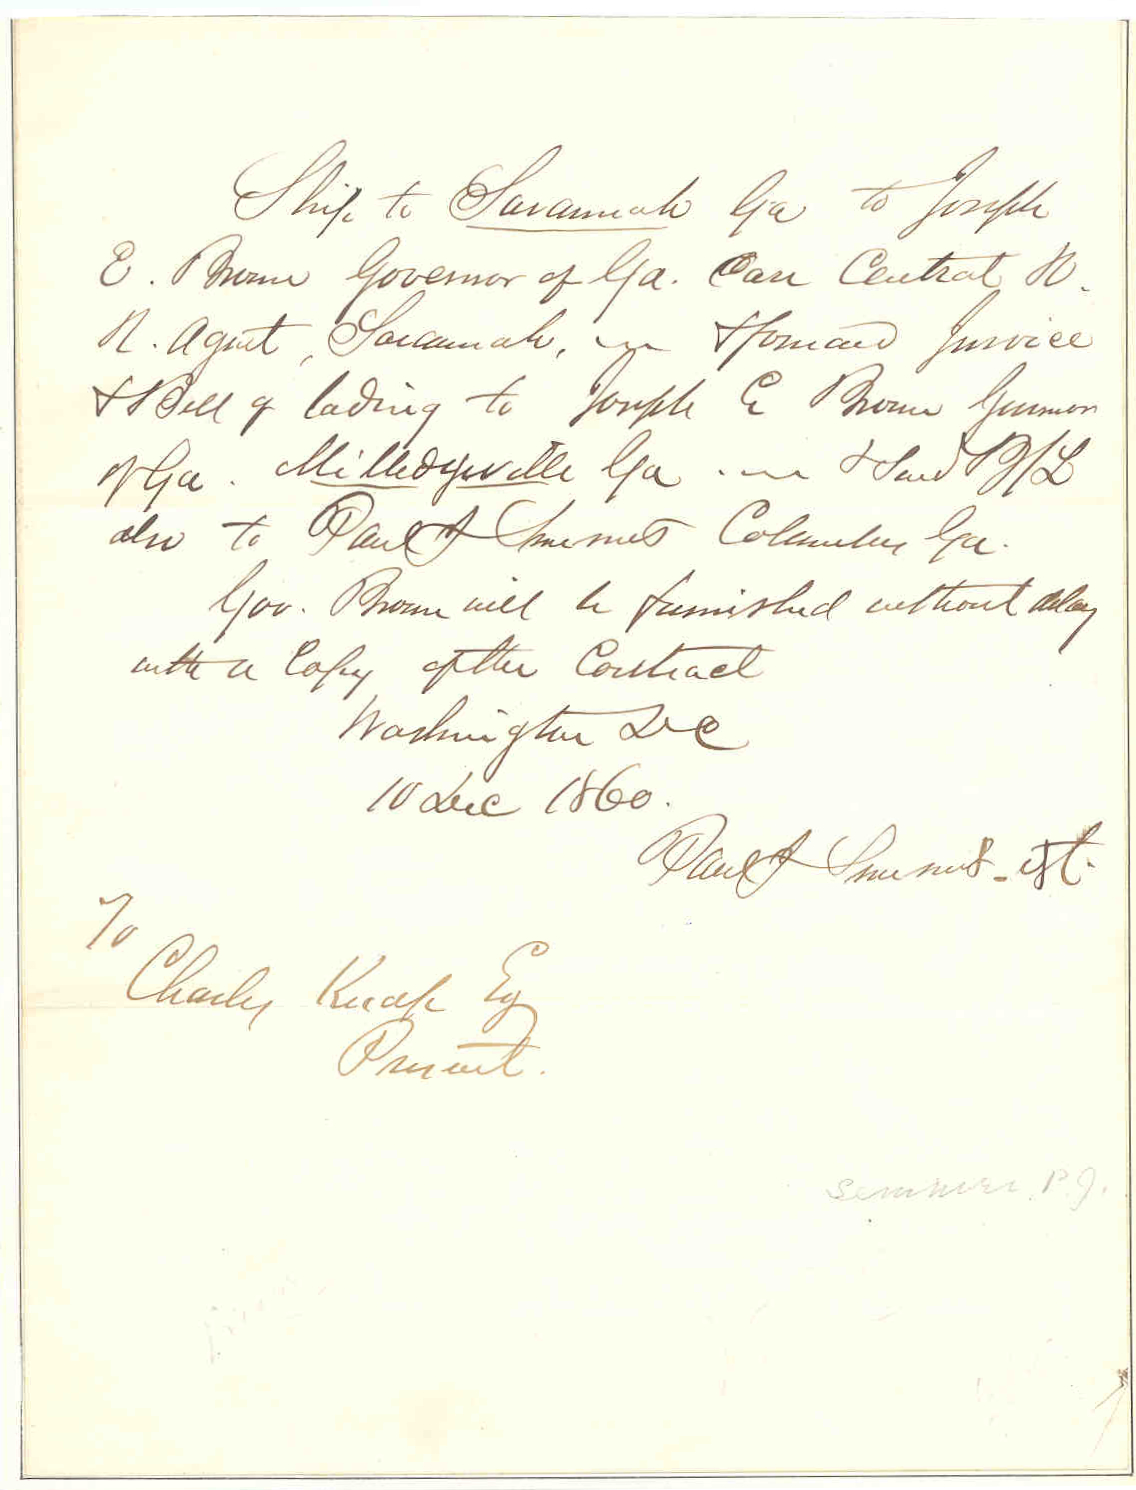 Ship to Savannah Ga to Joseph
E. Brown Governor of Ga. Care Central R.
R. Agent, Savannah, & forward Invoice
& Bill of lading to Joseph E Brown Governor
of Ga. Milledgeville Ga & send B/L
also to Paul J Semmes Columbus Ga.
Gov. Brown will be furnished without delay
with a Copy of the Contract
Washington DC
10 Dec 1860.
Paul J Semmes
To
Charles Knap Esq
Present.
Semmes, P.J.